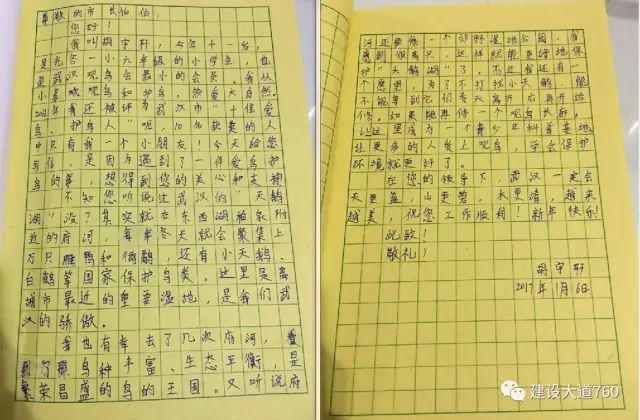 尊敬的市长伯伯:
您好!
我叫胡宇轩,今年十一岁,
是光谷一小六年级的小学生,也
是武汉观鸟会最小的会员。我从
小喜欢观鸟和护鸟,热爱大自然。
2011年我还被评为武汉市"十佳爱
鸟、护鸟人"呢,10名获奖的人
中只有我一个小朋友!今天给您
写信,是因为遇到了一件爱鸟护
鸟的事,想得到您的关心和支持。
不知您听说过武汉的"天鹅
湖"没?其实就在东西湖柏泉附
近的府河,每年冬天就会聚集上
万只雁鸭和鸻鹬,还有小天鹅、
白鹤等国家保护鸟类。这里是离
城市最近的重要湿地,是我们武
汉的骄傲。
我也有幸去了几次府河,看
到了那鸟种丰富、生态平衡,是
繁荣昌盛的鸟的王国。又听说府
河还要修一个郊野湿地公园,我
感到很高兴,这样就能更好地保
护"天鹅湖"了。不过我还有一
个愿望,为了不打扰小天鹅,能
不能等到它们春天离开后再开始
修。如果能再修一个观鸟长廊,
让这里成为一个青少年科普基地,
让更多的人爱上观鸟,学会保护
环境就更好了。
在您的领导下,武汉一定会
天更蓝,山更碧,水更清,越来
越美,祝您工作顺利!新年快乐!
此致!
敬礼!
胡宇轩
2017年1月6日
建设大道760